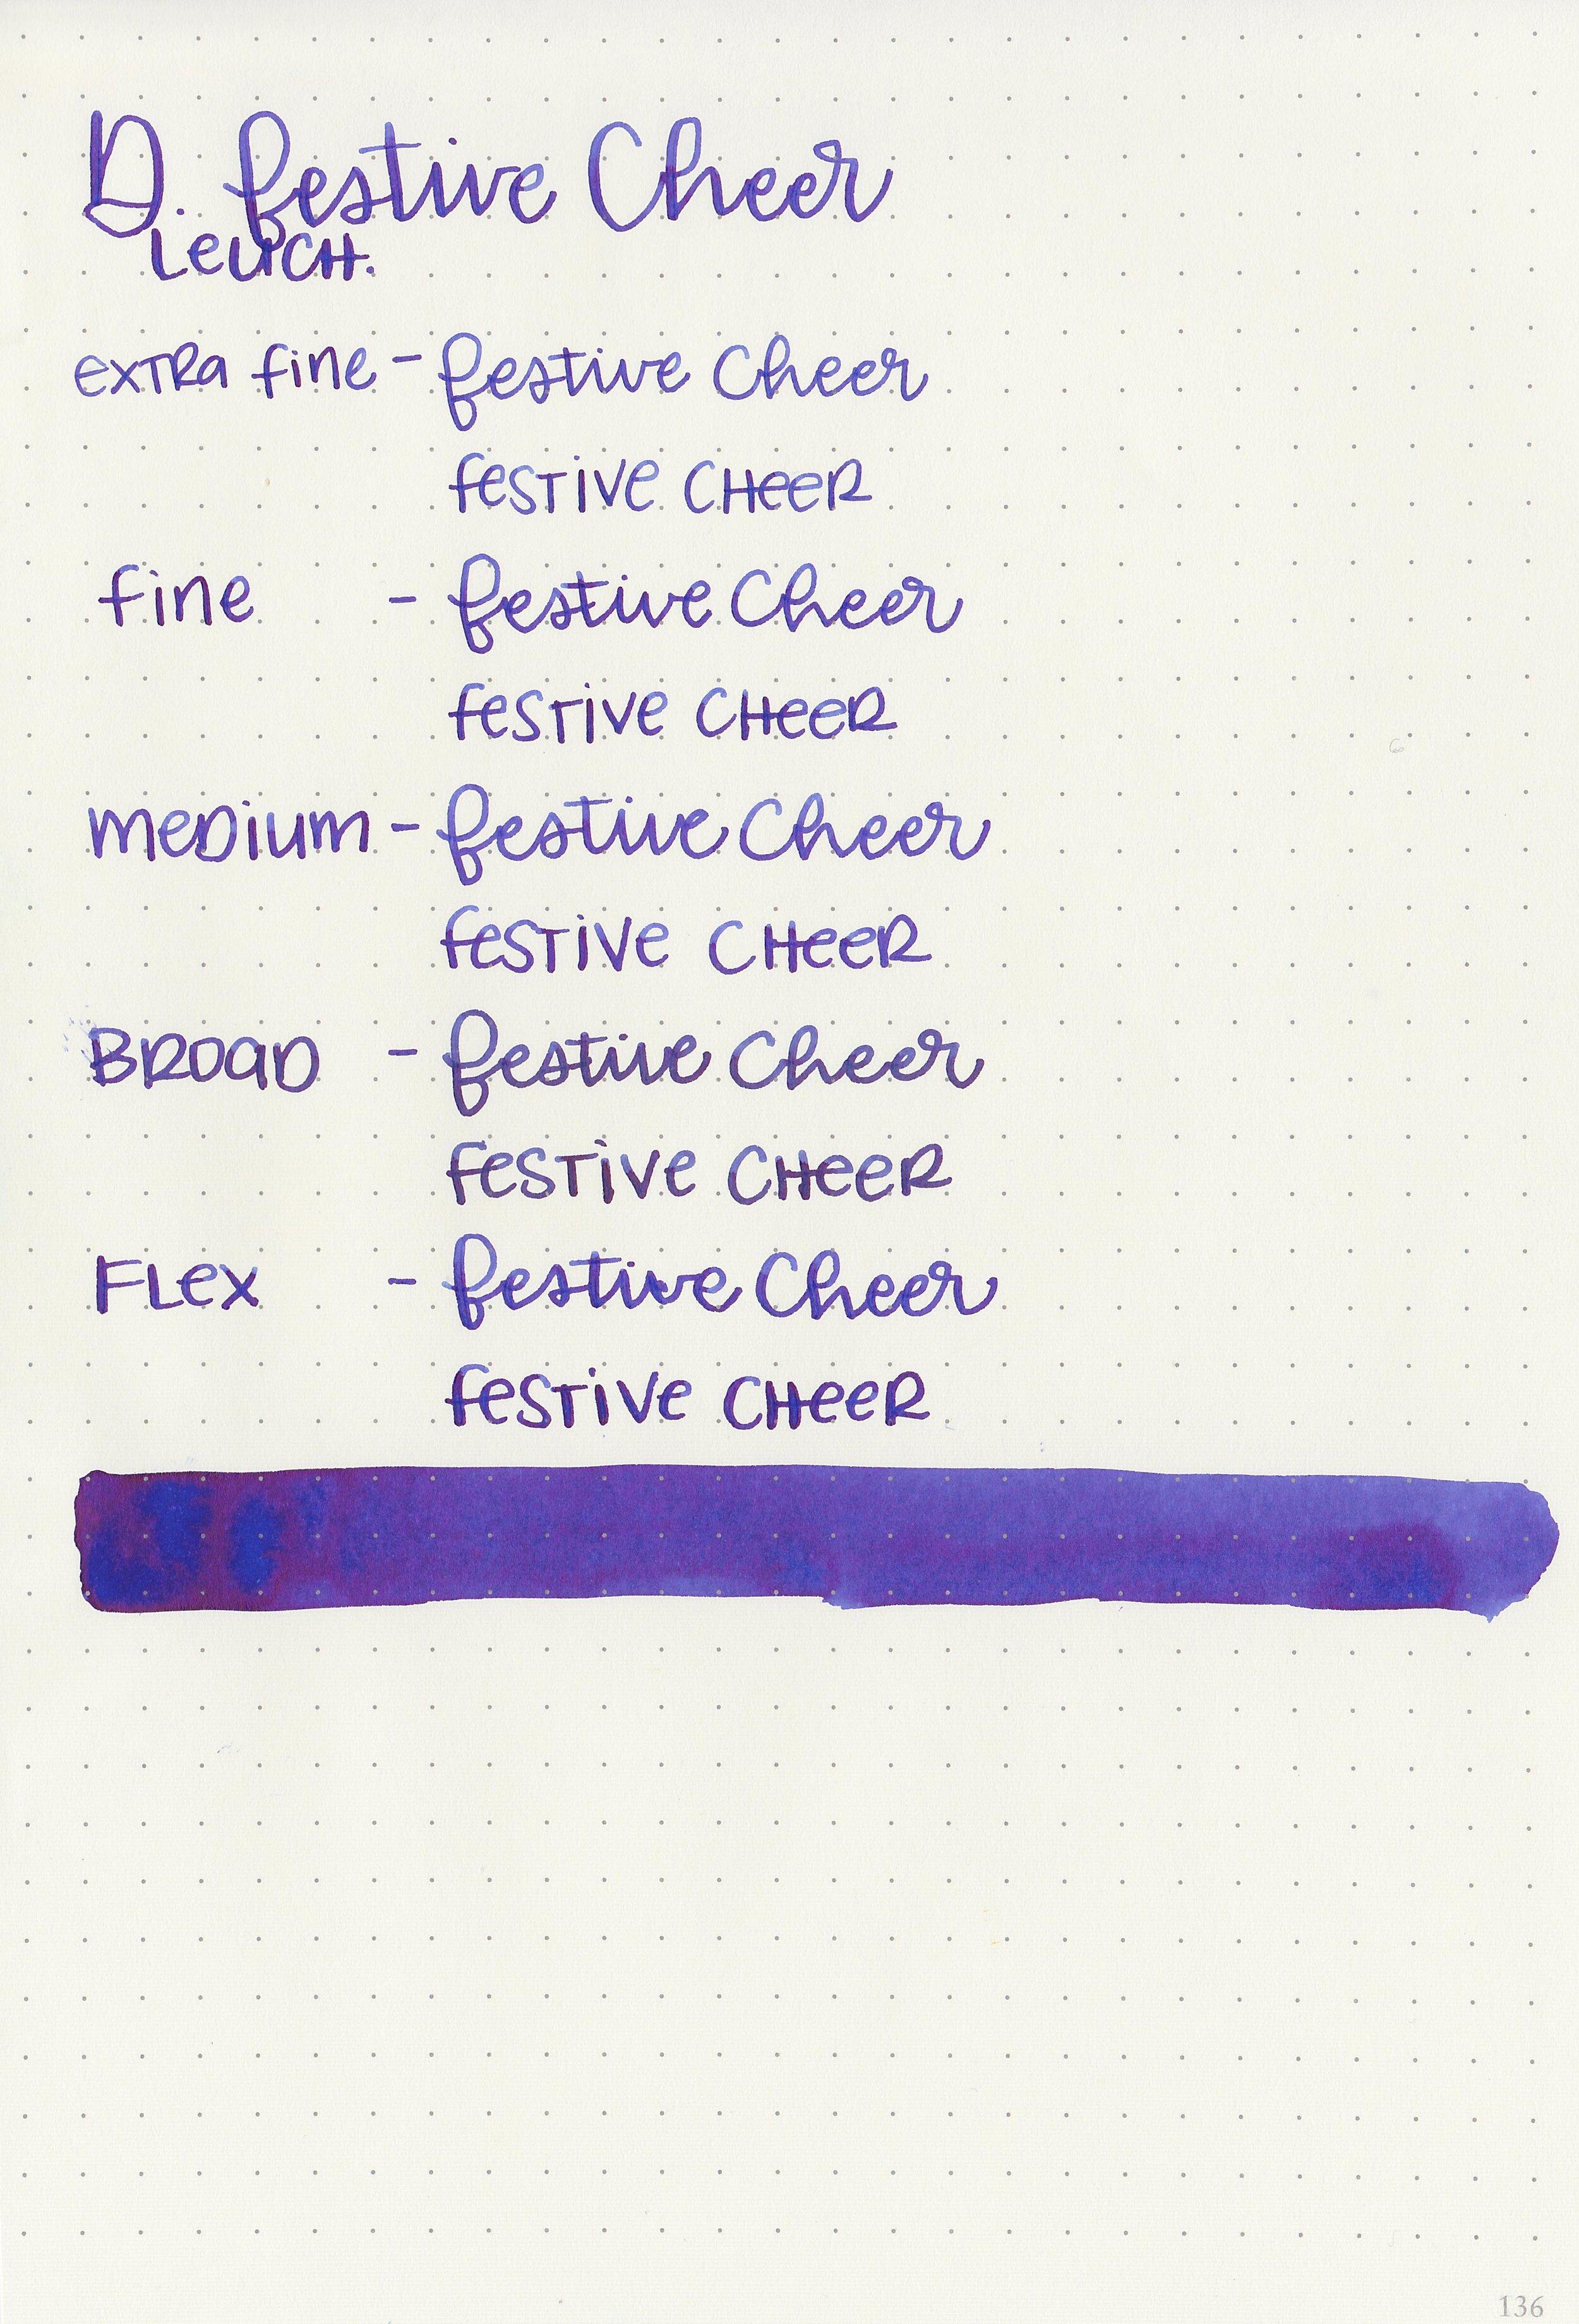 D. festive Cheer
Leuch.
extra fine - festive Cheer
festive cheer
fine - festive Cheer
festive cheer
medium - festive Cheer
festive cheer
Broad - festive Cheer
festive cheer
Flex - festive Cheer
festive cheer
136